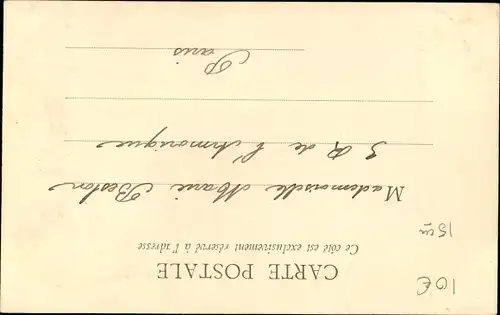 CARTE POSTALE
Ce côté est exclusivement réservé à l'adresse
Mademoiselle Marie Beslon
3 R de l'Armorique
Paris
10€